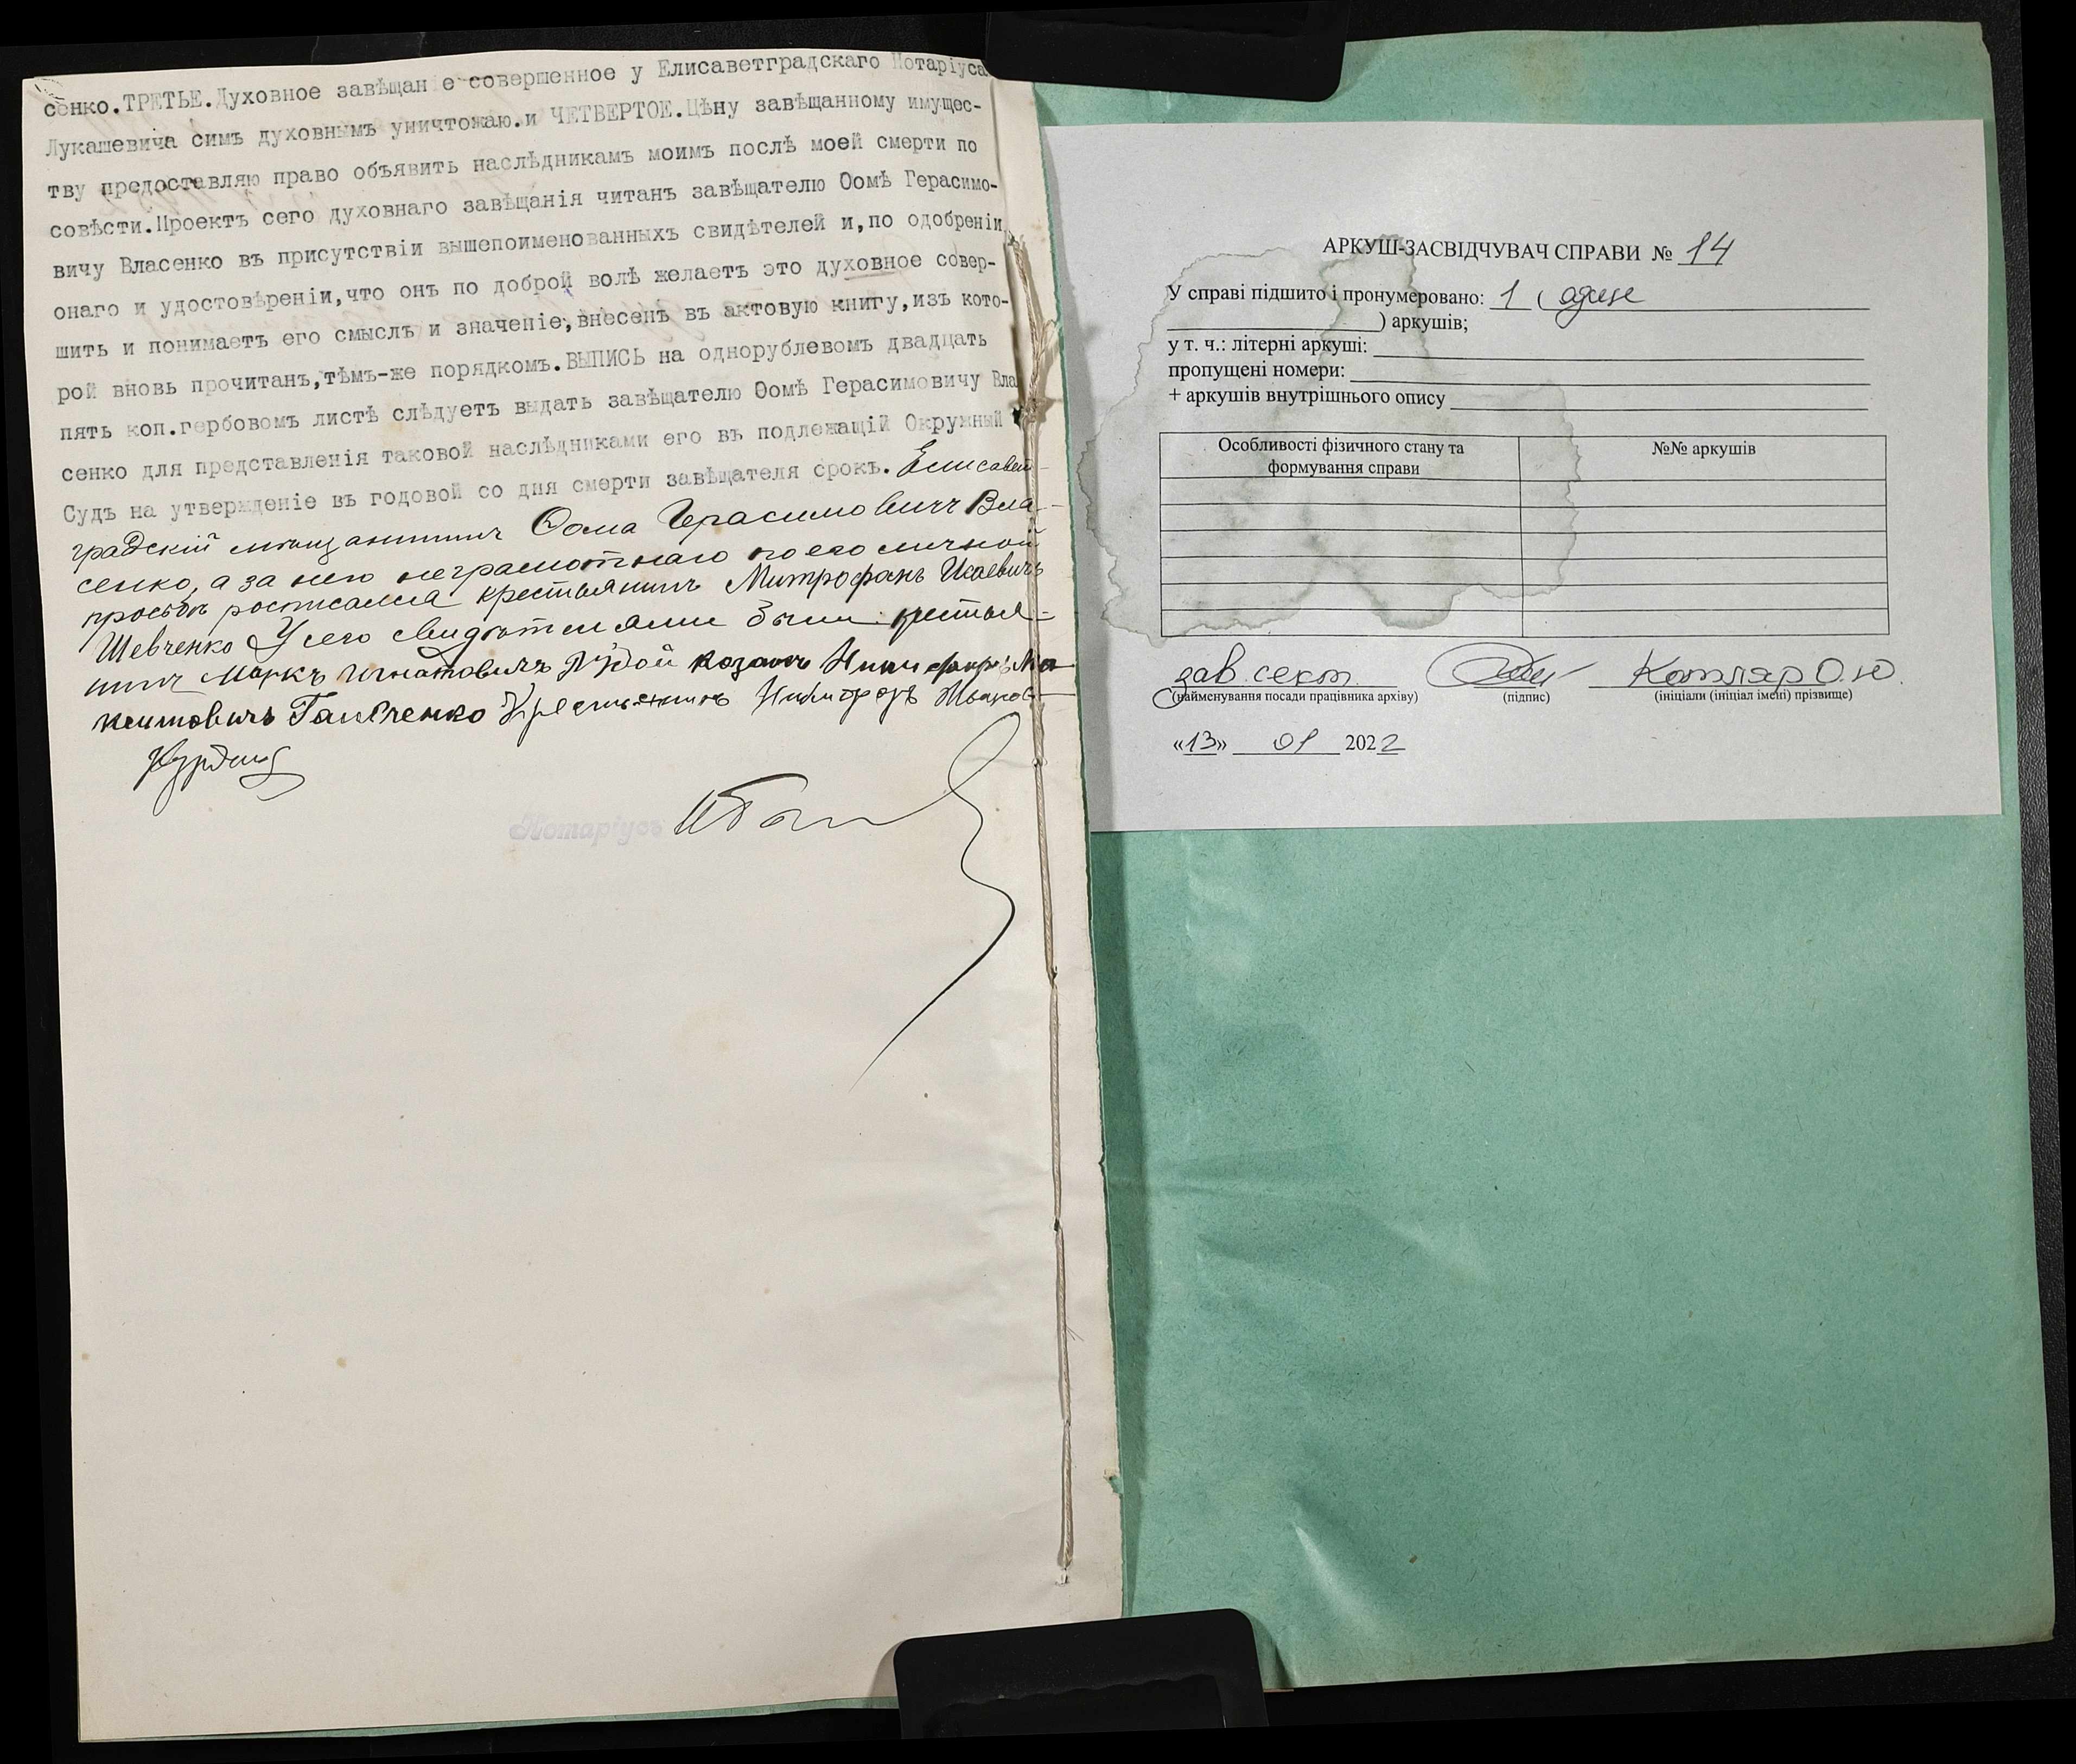 сенко.ТРЕТЬЕ.Духовное завѣщан е совершенное у Елисаветградскаго Нотаріуса
Лукашевича симъ духовнымъ уничтожаю.и ЧЕТВЕРТОЕ.Цѣну завѣщанному имущес-
тву предоставляю право объявить наслѣдникамъ моимъ послѣ моей смерти по
совѣсти.Проектъ сего духовнаго завѣщанія читанъ завѣщателю Ѳомѣ Герасимо-
вичу Власенко въ присутствіи вышепоименованныхъ свидѣтелей и,по одобреніи
онаго и удостовѣреніи,что онъ по доброй волѣ желаетъ это духовное совер-
шить и понимаетъ его смыслъ и значеніе,внесенъ въ актовую книгу,изъ кото-
рой вновь прочитанъ,тѣмъ-же порядкомъ.ВЫПИСЬ на однорублевомъ двадцать
пять коп.гербовомъ листѣ слѣдуетъ выдать завѣщателю Ѳомѣ Герасимовичу Вла
сенко для представленія таковой наслѣдниками его въ подлежащій Окружный
Судъ на утвержденіе въ годовой со дня смерти завѣщателя срокъ. Елисавет-
градскій мѣщанинъ Ѳома Герасимовичъ Вла-
сенко, а за него неграмотнаго по его личной
просьбѣ росписался крестьянинъ Митрофанъ Исаевичъ
Шевченко У сего свидѣтелями были: крестья-
нинъ Маркъ Игнатовичъ Рудой козакъ Никифоръ
Ганченко Крестьянинъ Никифоръ
Нотаріусъ
АРКУШ-ЗАСВІДЧУВАЧ СПРАВИ № 14
У справі підшито і пронумеровано: 1 ( один
) аркушів;
у т. ч.: літерні аркуші:
пропущені номери:
+ аркушів внутрішнього опису
Особливості фізичного стану та формування справи
№№ аркушів
зав. сект. Котляр О.Ю.
(найменування посади працівника архіву) (підпис) (ініціали (ініціал імені) прізвище)
«13» 01 2022